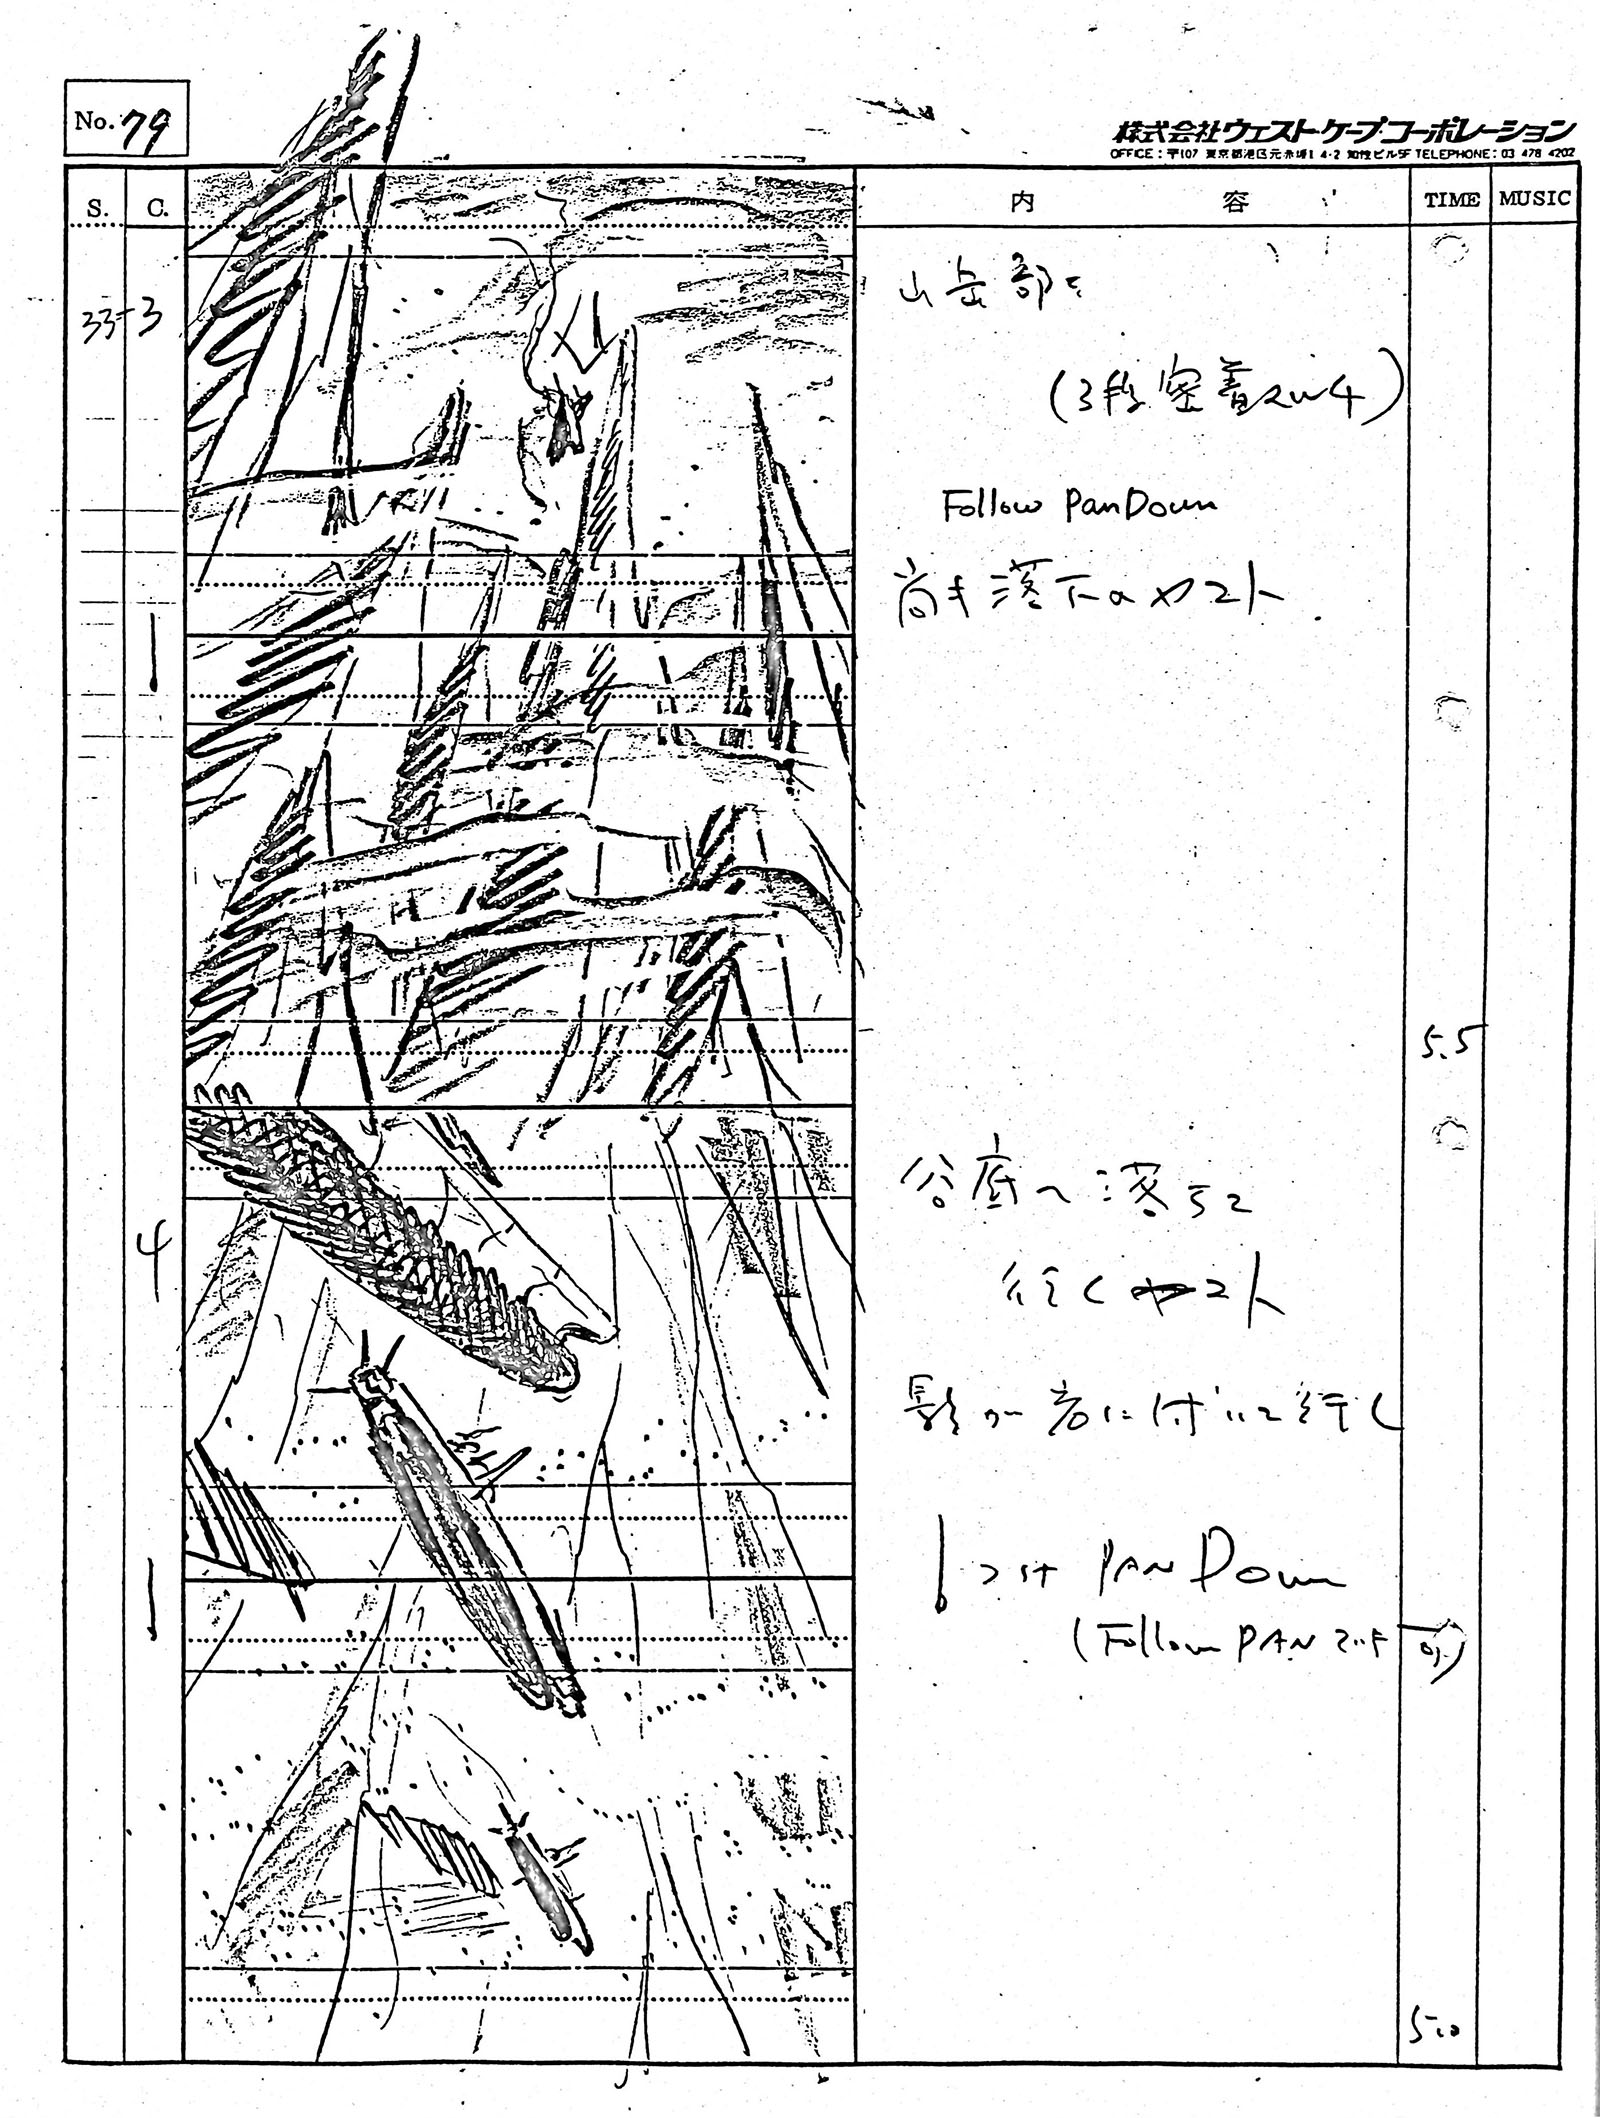 No. 79
株式会社ウェストケープ・コーポレーション
OFFICE : 〒107 東京都港区元赤坂1 4-2 知性ビル5F TELEPHONE : 03 478 4202
S. C. 内容 TIME MUSIC
33-3
山岳部
(3段密着スい4)
Follow Pan Down
尚も落下のヤマト
5.5
谷底へ落ちて
4
行くヤマト
影が岩に付いて行く
PAN Down
(Follow PAN
5.0